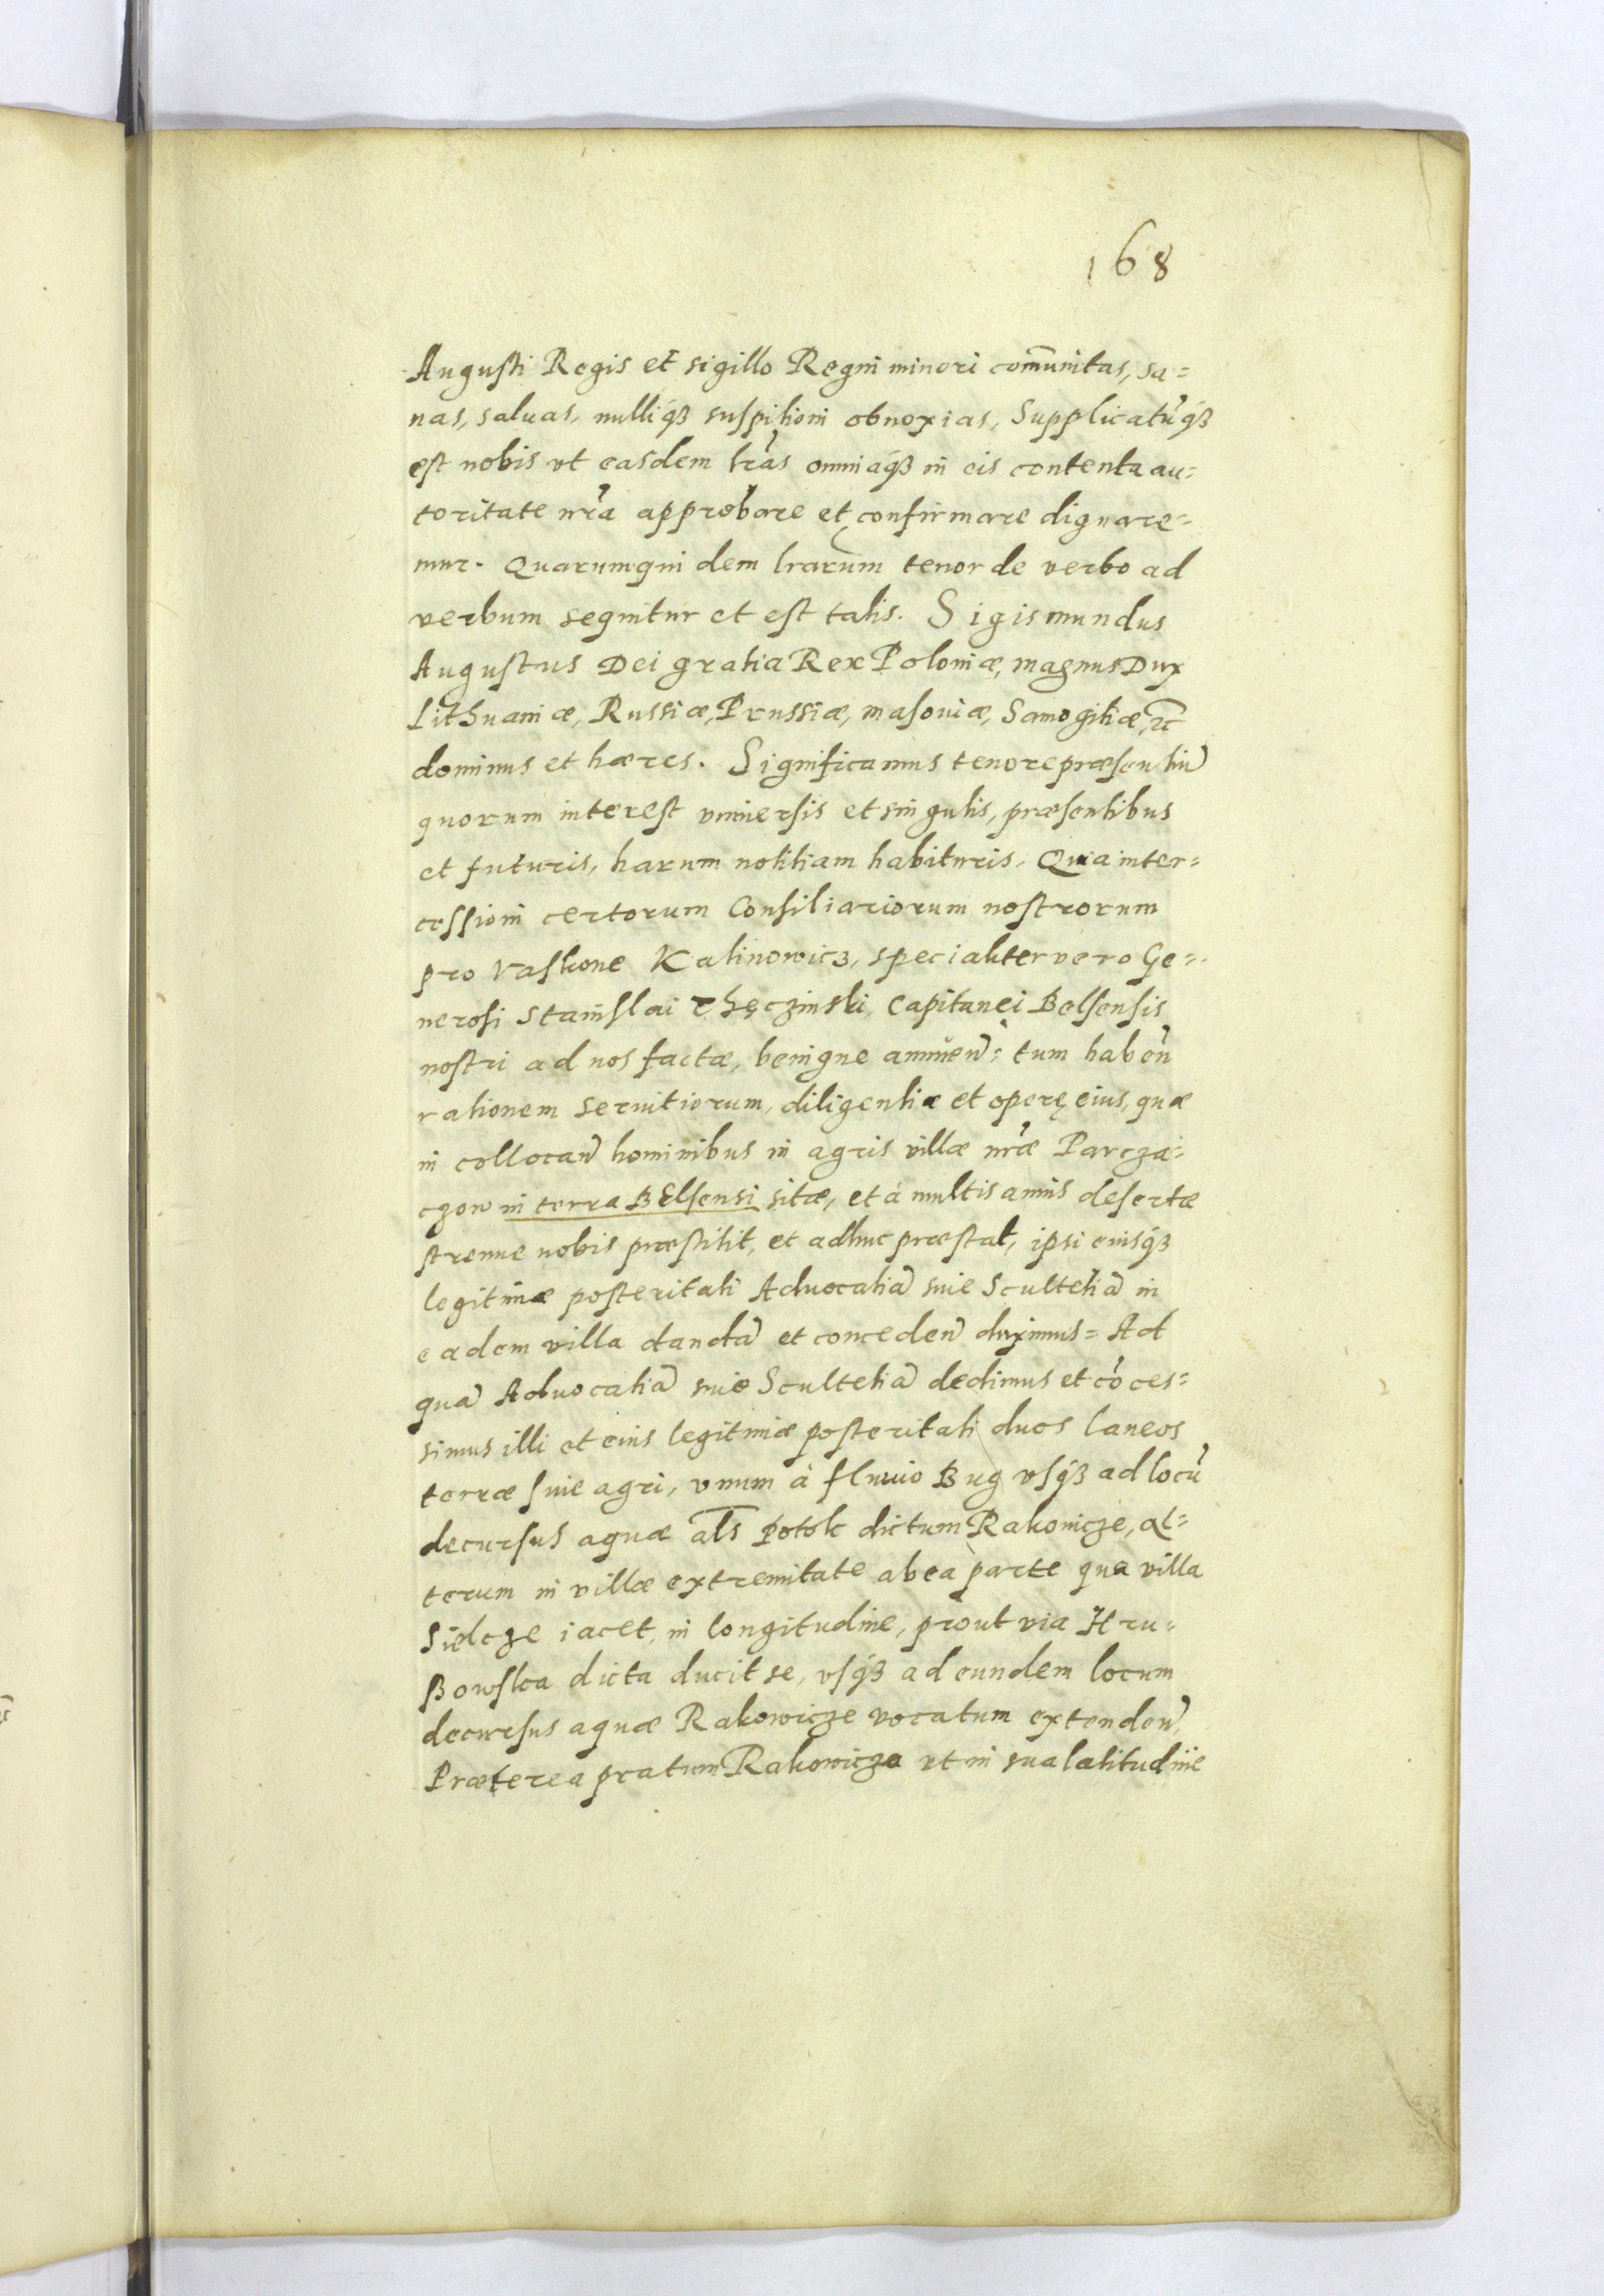 168
Augusti Regis et sigillo Regni minori com̃unitas, sa=
nas, saluas, nulliq́ꝫ suspitioni obnoxias, Supplicatũq́ꝫ
est nobis vt easdem lr̃as omniaq́ꝫ in eis contenta au=
toritate nr̃a approbare et confirmare dignare=
mur. Quarumqui dem lrarum tenor de verbo ad
verbum sequitur et est talis. Sigismundus
Augustus Dei gratia Rex Poloniæ, magnus Dux
Lithuaniæ, Russiæ, Prussiæ, masouiæ, Samogitiæ, ꝛc̃
dominus et hæres. Significamus tenore præsentiũ
quorum interest vniuersis et singulis, præsentibus
et futuris, harum notitiam habituris. Quia inter=
cessioni certorum Consiliariorum nostrorum
pro Vaskone Kalinowicz, specialiter vero Ge=
nerosi Stanislai Thęczinski, Capitanei Belsensis
nostri ad nos factæ, benigne annuen̄: tum haben̄
rationem seruitiorum, diligentiæ et operę eius, quæ
in collocan̄ hominibus in agris villæ nr̃æ Parcza=
czow in terra BElsensi sitæ, et à multis annis desertæ
strenue nobis præstitit, et adhuc præstat, ipsi eiusq́ꝫ
legitimæ posteritati Aduocatiã siue Scultetiã in
eadem villa dandã et conceden̄ duximus= Ad
quã Aduocatiã siue Scultetiã dedimus et cõces=
simus illi et eius legitimæ posteritati duos laneos
terræ siue agri, vnum à fluuio Bug vsq́ꝫ ad locũ
decursus aquæ al̃s potok dictum Rakowicze, al=
terum in villæ extremitate ab ea parte qua villa
Sielcze iacet, in longitudine, prout via Hru=
ßowska dicta ducit se, vsq́ꝫ ad eundem locum
decursus aquæ Rakowicze vocatum extenden̄,
Præterea pratum Rakowicze vt in sua latitudine